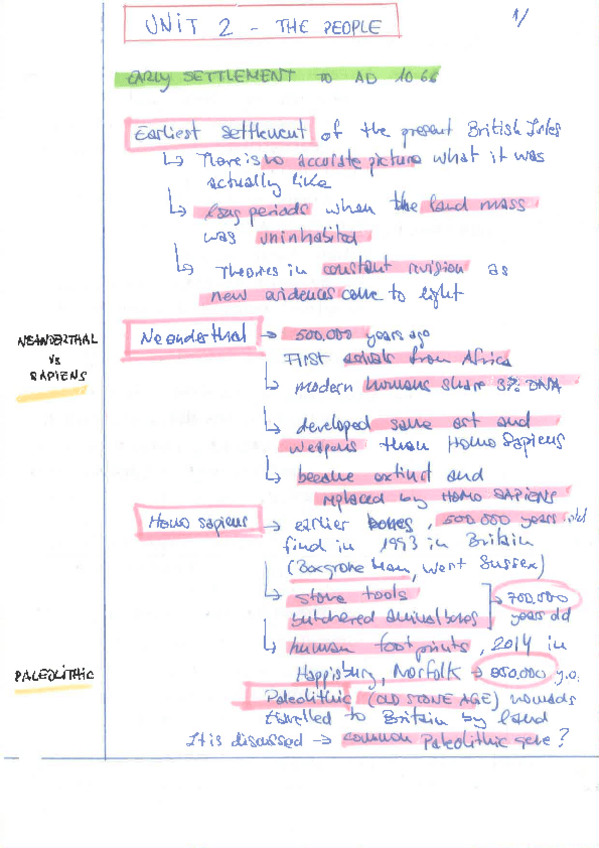 UNIT 2 - THE PEOPLE
1/
EARLY SETTLEMENT TO AD 1066
Earliest settlement of the present British Isles
↳ There is no accurate picture what it was
actually like
↳ long periods when the land mass
was uninhabited
↳ Theories in constant revision as
new evidences come to light
NEANDERTHAL
VS
SAPIENS
Neanderthal → 500,000 years ago
FIRST arrivals from Africa
↳ modern humans share 3% DNA
↳ developed same art and
weapons than Homo Sapiens
↳ became extinct and
replaced by HOMO SAPIENS
Homo sapiens → earlier bones, 500 000 years old
find in 1993 in Britain
(Boxgrove Man, West Sussex)
↳ stone tools
butchered animal bones → 700,000
years old
↳ human footprints, 2014 in
Happisburg, Norfolk → 850,000 y.o.
PALEOLITHIC
Paleolithic (OLD STONE AGE) nomads
travelled to Britain by land
It is discussed → common Paleolithic gene?